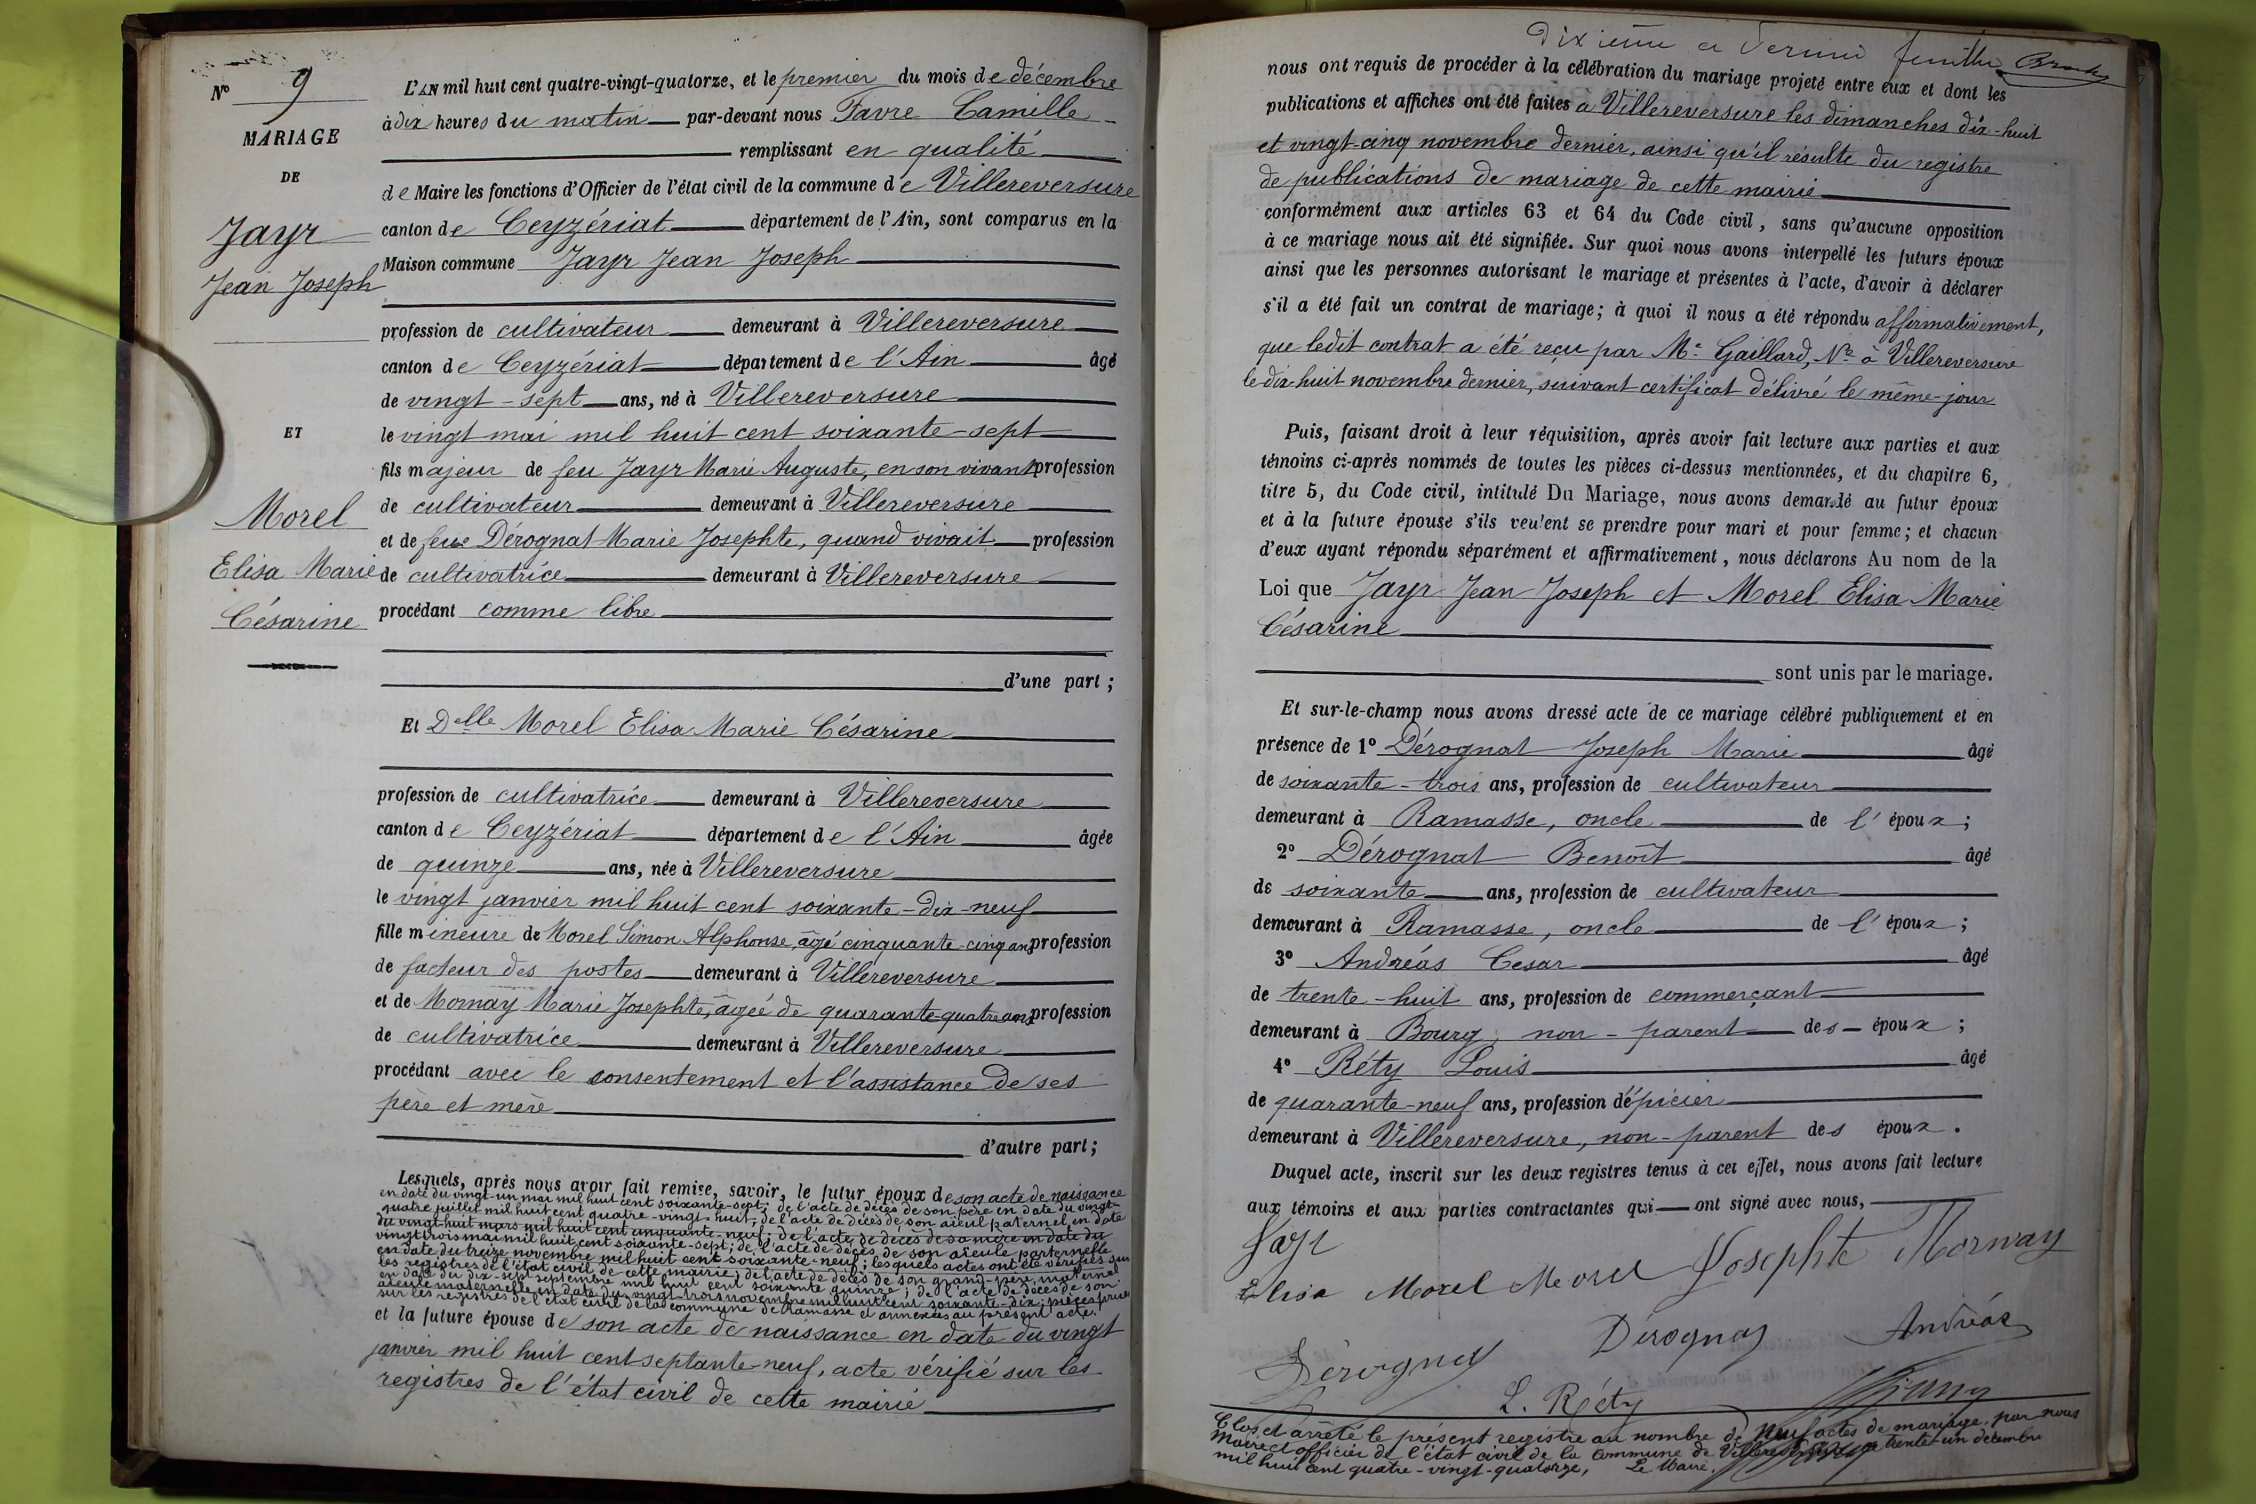 N° 9
MARIAGE
DE
Jayr
Jean Joseph
ET
Morel
Elisa Marie
Césarine
L'AN mil huit cent quatre-vingt-quatorze, et le premier du mois de décembre
à dix heures du matin par-devant nous Favre Camille
remplissant en qualité
de Maire les fonctions d'Officier de l'état civil de la commune de Villereversure
canton de Ceyzériat département de l'Ain, sont comparus en la
Maison commune Jayr Jean Joseph
profession de cultivateur demeurant à Villereversure
canton de Ceyzériat département de l'Ain âgé
de vingt-sept ans, né à Villereversure
le vingt mai mil huit cent soixante-sept
fils majeur de feu Jayr Marie Auguste, en son vivant profession
de cultivateur demeurant à Villereversure
et de feue Dérognat Marie Josephte, quand vivait profession
de cultivatrice demeurant à Villereversure
procédant comme libre
d'une part ;
Et Delle Morel Elisa Marie Césarine
profession de cultivatrice demeurant à Villereversure
canton de Ceyzériat département de l'Ain âgée
de quinze ans, née à Villereversure
le vingt janvier mil huit cent soixante-dix-neuf
fille mineure de Morel Simon Alphonse, âgé cinquante-cinq ans profession
de facteur des postes demeurant à Villereversure
et de Mornay Marie Josephte, âgée de quarante-quatre ans profession
de cultivatrice demeurant à Villereversure
procédant avec le consentement et l'assistance de ses
père et mère
d'autre part ;
Lesquels, après nous avoir fait remise, savoir, le futur époux de son acte de naissance
en date du vingt-un mai mil huit cent soixante-sept; de l'acte de décès de son père en date du vingt-
quatre juillet mil huit cent quatre-vingt-huit; de l'acte de décès de son aïeul paternel en date
du vingt-huit mars mil huit cent cinquante-neuf; de l'acte de décès de sa mère en date du
vingt trois mai mil huit cent soixante-sept; de l'acte de décès de son aïeule paternelle
en date du treize novembre mil huit cent soixante-neuf; lesquels actes ont été vérifiés sur
les registres de l'état civil de cette mairie; de l'acte de décès de son grand-père maternel
en date du dix-sept septembre mil huit cent soixante quinze; de l'acte de décès de son
aïeule maternelle en date du vingt-trois novembre mil huit cent soixante-dix; pièces prises
sur les registres de l'état civil de la commune de Ramasse et annexées au présent acte.
et la future épouse de son acte de naissance en date du vingt
janvier mil huit cent septante-neuf, acte vérifié sur les
registres de l'état civil de cette mairie
Dixième et dernier feuillet
nous ont requis de procéder à la célébration du mariage projeté entre eux et dont les
publications et affiches ont été faites à Villereversure les dimanches dix-huit
et vingt-cinq novembre dernier, ainsi qu'il résulte du registre
de publications de mariage de cette mairie
conformément aux articles 63 et 64 du Code civil, sans qu'aucune opposition
à ce mariage nous ait été signifiée. Sur quoi nous avons interpellé les futurs époux
ainsi que les personnes autorisant le mariage et présentes à l'acte, d'avoir à déclarer
s'il a été fait un contrat de mariage ; à quoi il nous a été répondu affirmativement,
que ledit contrat a été reçu par Me Gaillard, Nre à Villereversure
le dix huit novembre dernier, suivant certificat délivré le même jour
Puis, faisant droit à leur réquisition, après avoir fait lecture aux parties et aux
témoins ci-après nommés de toutes les pièces ci-dessus mentionnées, et du chapitre 6,
titre 5, du Code civil, intitulé Du Mariage, nous avons demandé au futur époux
et à la future épouse s'ils veulent se prendre pour mari et pour femme ; et chacun
d'eux ayant répondu séparément et affirmativement, nous déclarons Au nom de la
Loi que Jayr Jean Joseph et Morel Elisa Marie
Césarine
sont unis par le mariage.
Et sur-le-champ nous avons dressé acte de ce mariage célébré publiquement et en
présence de 1° Dérognat Joseph Marie âgé
de soixante-trois ans, profession de cultivateur
demeurant à Ramasse, oncle de l'époux ;
2° Dérognat Benoît âgé
de soixante ans, profession de cultivateur
demeurant à Ramasse, oncle de l'époux ;
3° Andréas Cesar âgé
de trente-huit ans, profession de commerçant
demeurant à Bourg, non-parent des époux ;
4° Réty Louis âgé
de quarante-neuf ans, profession d'épicier
demeurant à Villereversure, non-parent des époux.
Duquel acte, inscrit sur les deux registres tenus à cet effet, nous avons fait lecture
aux témoins et aux parties contractantes qui ont signé avec nous,
Jayr
Elisa Morel Morel Josephte Mornay
Dérognat Dérognat Andréas
L. Réty
Clos et arrêté le présent registre au nombre de neuf actes de mariage par nous
Maire et officier de l'état civil de la commune de Villereversure le trente-un décembre
mil huit cent quatre-vingt-quatorze, Le Maire.